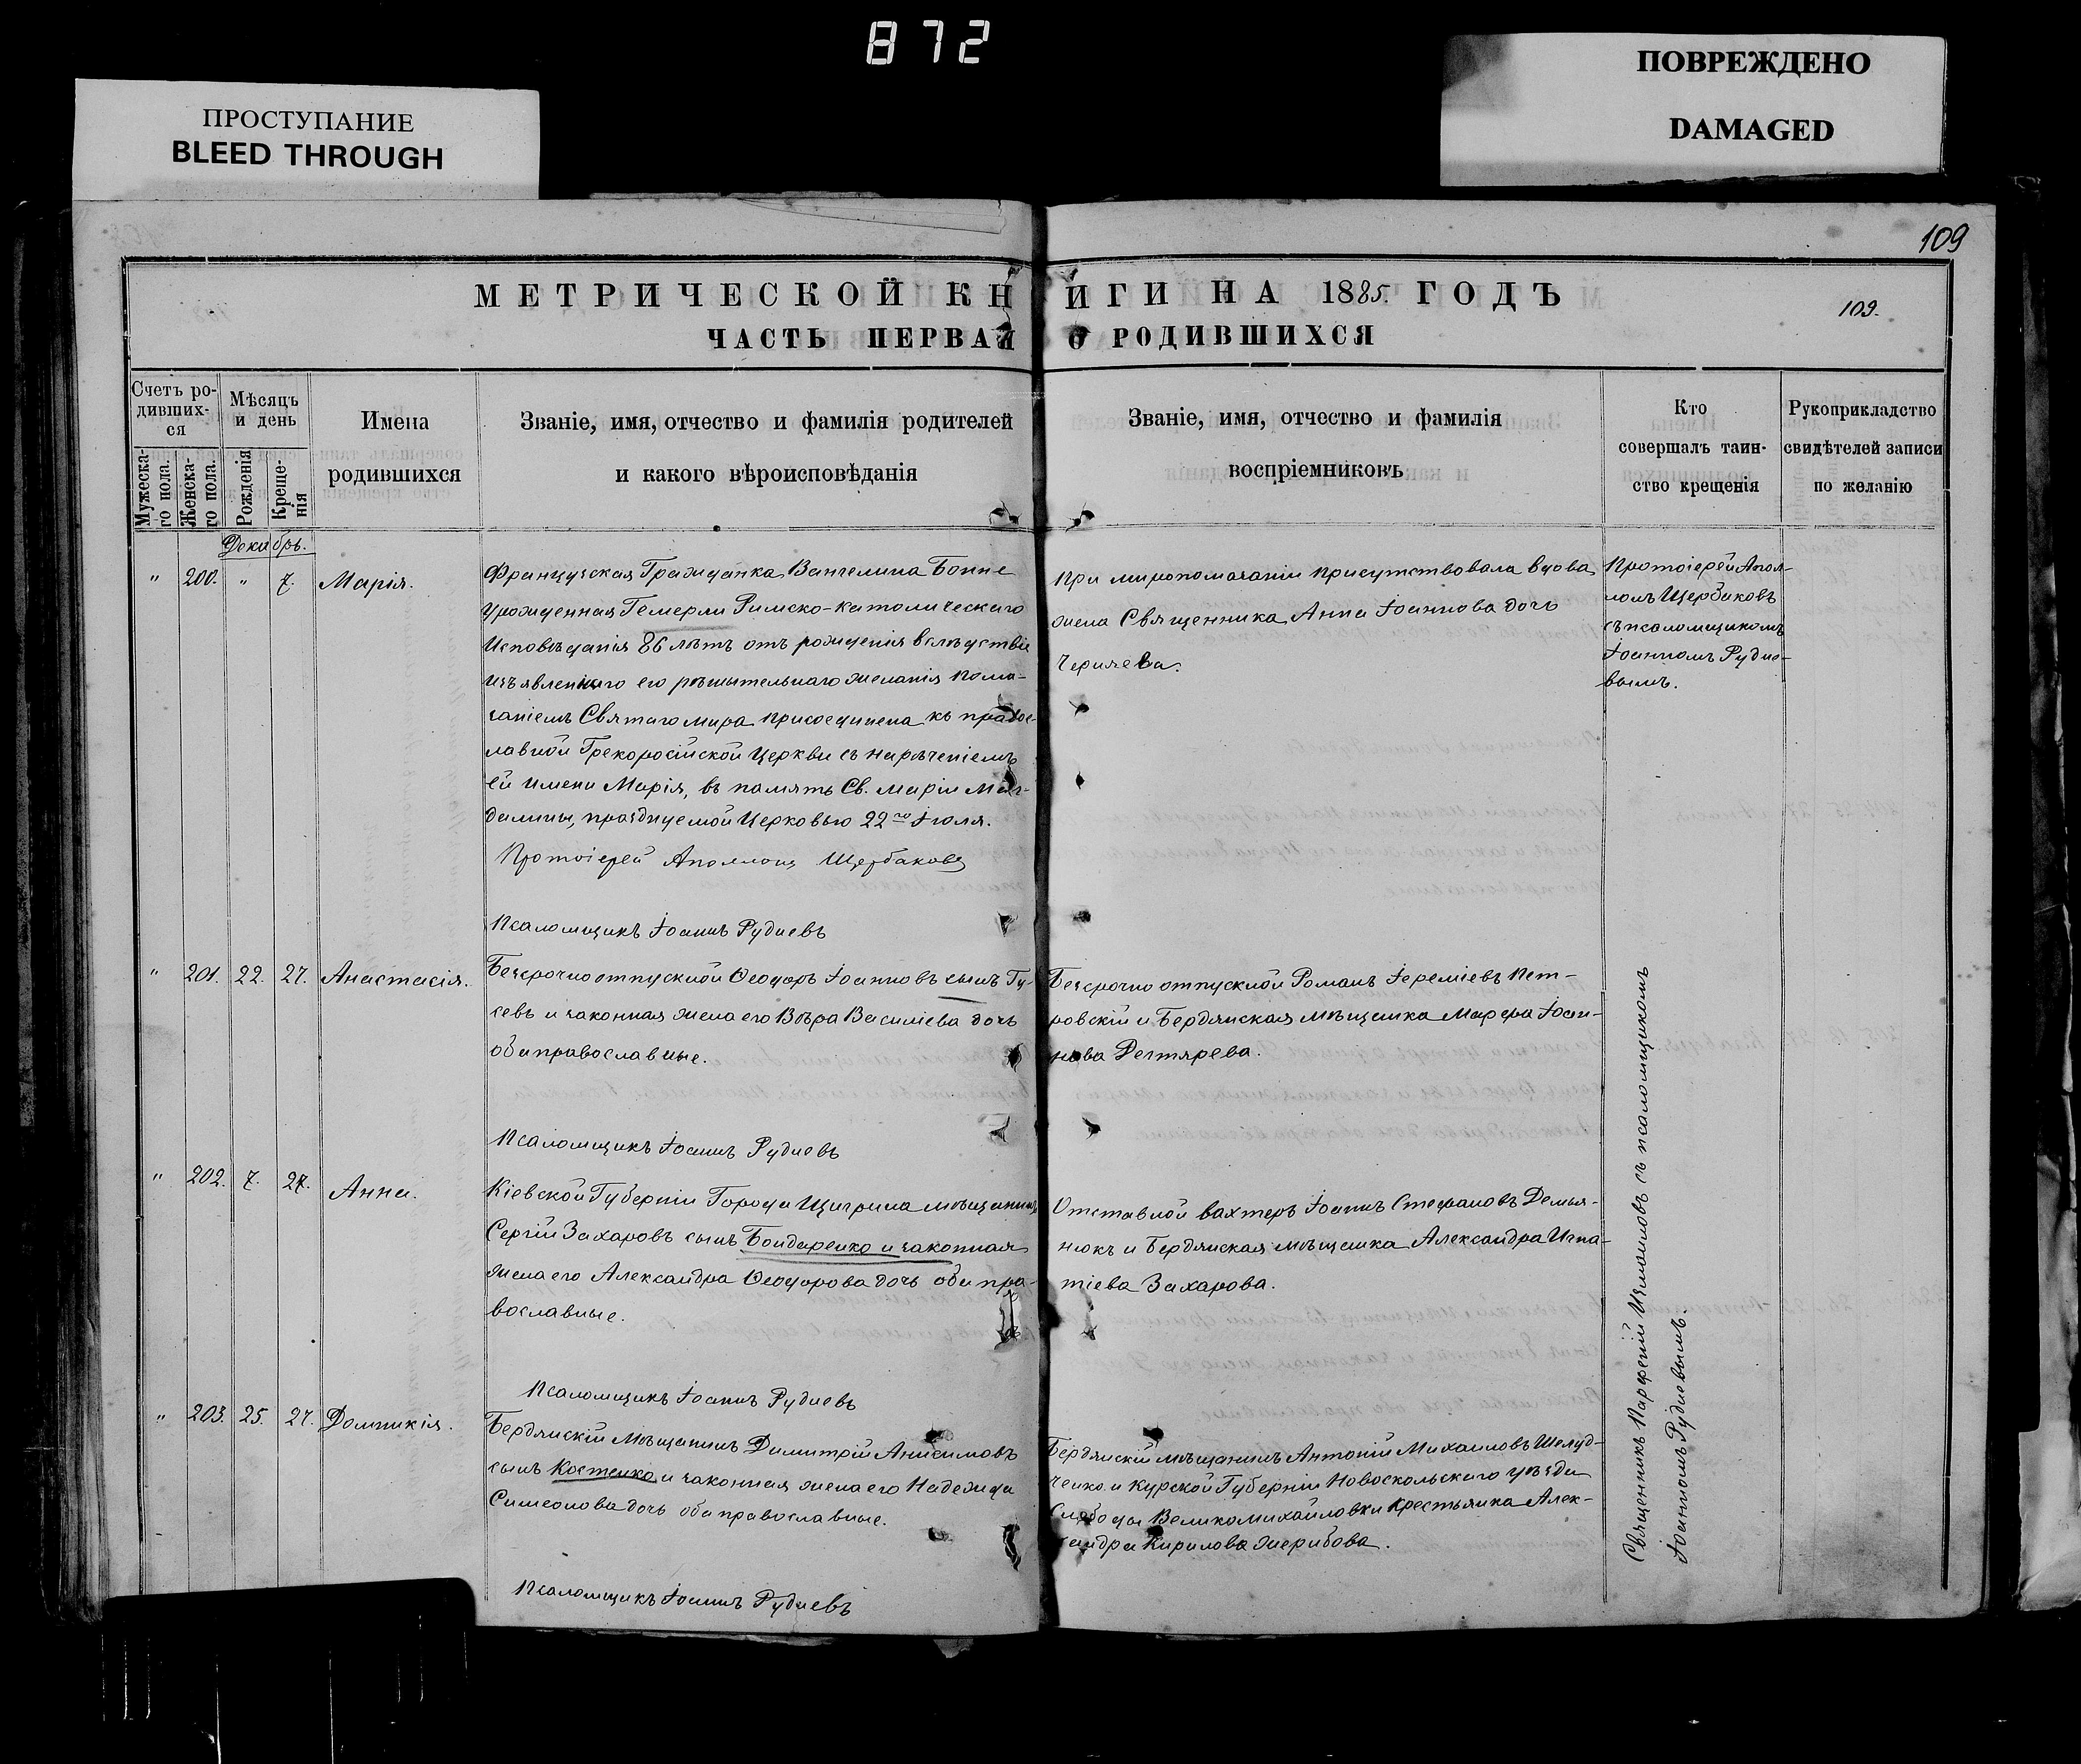 872
ПРОСТУПАНИЕ
BLEED THROUGH
ПОВРЕЖДЕНО
DAMAGED
109
МЕТРИЧЕСКОЙ КНИГИ НА 1885. ГОДЪ
109.
ЧАСТЬ ПЕРВАЯ О РОДИВШИХСЯ
Счетъ ро-
дивших-
ся
Мужеска-
го пола.
Женска-
го пола.
Мѣсяцъ
и день
Рожденія
Креще-
нія
Имена
родившихся
Званіе, имя, отчество и фамилія родителей
и какого вѣроисповѣданія
Званіе, имя, отчество и фамилія
воспріемниковъ
Кто
совершалъ таин-
ство крещенія
Рукоприкладство
свидѣтелей записи
по желанію
Декабрь.
" 200. " 7. Марія.
Французская Гражданка Вангелина Боппе
урожденная Гемерли Римско-католическаго
Исповѣданія 86 лѣтъ отъ рожденія вслѣдствіе
изъявленнаго его рѣшительнаго желанія пома-
заніемъ Святаго мира присоединена къ правос-
лавной Грекоросійской Церкви съ нарѣченіемъ
ей имени Марія, въ память Св. Маріи Маг-
далины, празднуемой Церковью 22го Іюля.
Протоіерей Аполлонъ Щербаковъ
Псаломщикъ Іоаннъ Рудневъ
При миропомазаніи присутствовала вдова
жена Священника Анна Іоаннова дочь
Черняева.
Протоіерей Апол-
лонъ Щербаковъ
съ псаломщикомъ
Іоанномъ Рудне-
вымъ.
" 201. 22. 27. Анастасія.
Безсрочноотпускной Ѳеодоръ Іоанновъ сынъ Гу-
севъ и законная жена его Вѣра Василіева дочь
оба православные.
Псаломщикъ Іоаннъ Рудневъ
Безсрочно отпускной Романъ Іереміевъ Пет-
ровскій и Бердянская мѣщанка Марфа Іоан-
нова Дегтярева.
" 202. 7. 27. Анна.
Кіевской Губерніи Города Щигрина мѣщанинъ
Сергій Захаровъ сынъ Бондаренко и законная
жена его Александра Ѳеодорова дочь оба пра-
вославные.
Псаломщикъ Іоаннъ Рудневъ
Отставной вахтеръ Іоаннъ Стефановъ Демья-
нюкъ и Бердянская мѣщанка Александра Игна-
тіева Захарова.
" 203. 25. 27. Домникія.
Бердянскій Мѣщанинъ Димитрій Анисимовъ
сынъ Костенко и законная жена его Надежда
Симеонова дочь оба православные.
Псаломщикъ Іоаннъ Рудневъ
Бердянскій мѣщанинъ Антоній Михаиловъ Шелуд-
ченко и Курской Губерніи Новоскольскаго уѣзда
Слободы Великомихайловки Крестьянка Алек-
сандра Кирилова Жерибова.
Священникъ Парфеній Измаиловъ съ псаломщикомъ
Іоанномъ Рудневымъ.